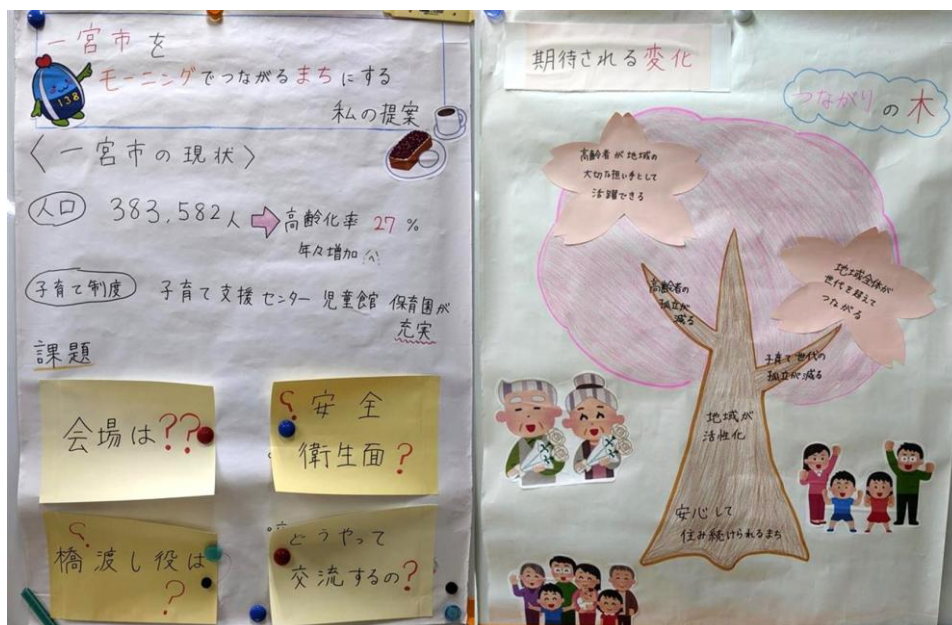 一宮市を
モーニングでつながるまちにする
私の提案
138
〈一宮市の現状〉
人口 383,582人 ⇨ 高齢化率 27%
年々増加
子育て制度 子育て支援センター 児童館 保育園が
充実
課題
会場は??
?安全
衛生面?
?
橋渡し役は
?
どうやって
交流するの?
期待される変化
つながりの木
高齢者が地域の
大切な担い手として
活躍できる
地域全体が
世代を超えて
つながる
高齢者の
孤立が
減る
子育て世代の
孤立が減る
地域が
活性化
安心して
住み続けられるまち